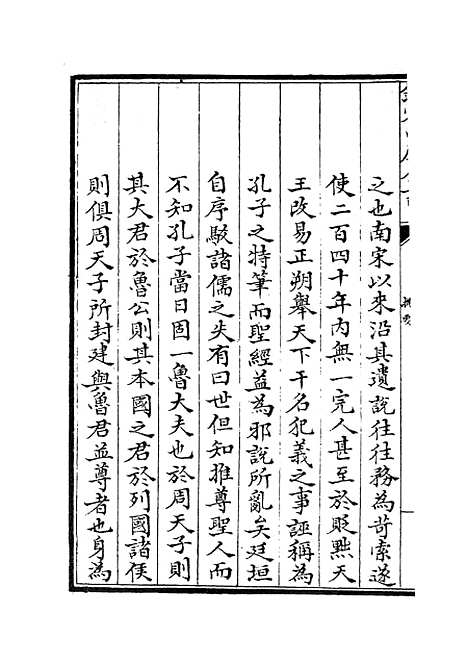 之也南宋以來沿其遺說往往務為苛索遂
使二百四十年內無一完人甚至於貶黜天
王改易正朔舉天下干名犯義之事誣稱為
孔子之特筆而聖經益為邪說所亂矣廷垣
自序駮諸儒之失有曰世但知推尊聖人而
不知孔子當日固一魯大夫也於周天子則
其大君於魯公則其本國之君於列國諸侯
則俱周天子所封建與魯君並尊者也身為